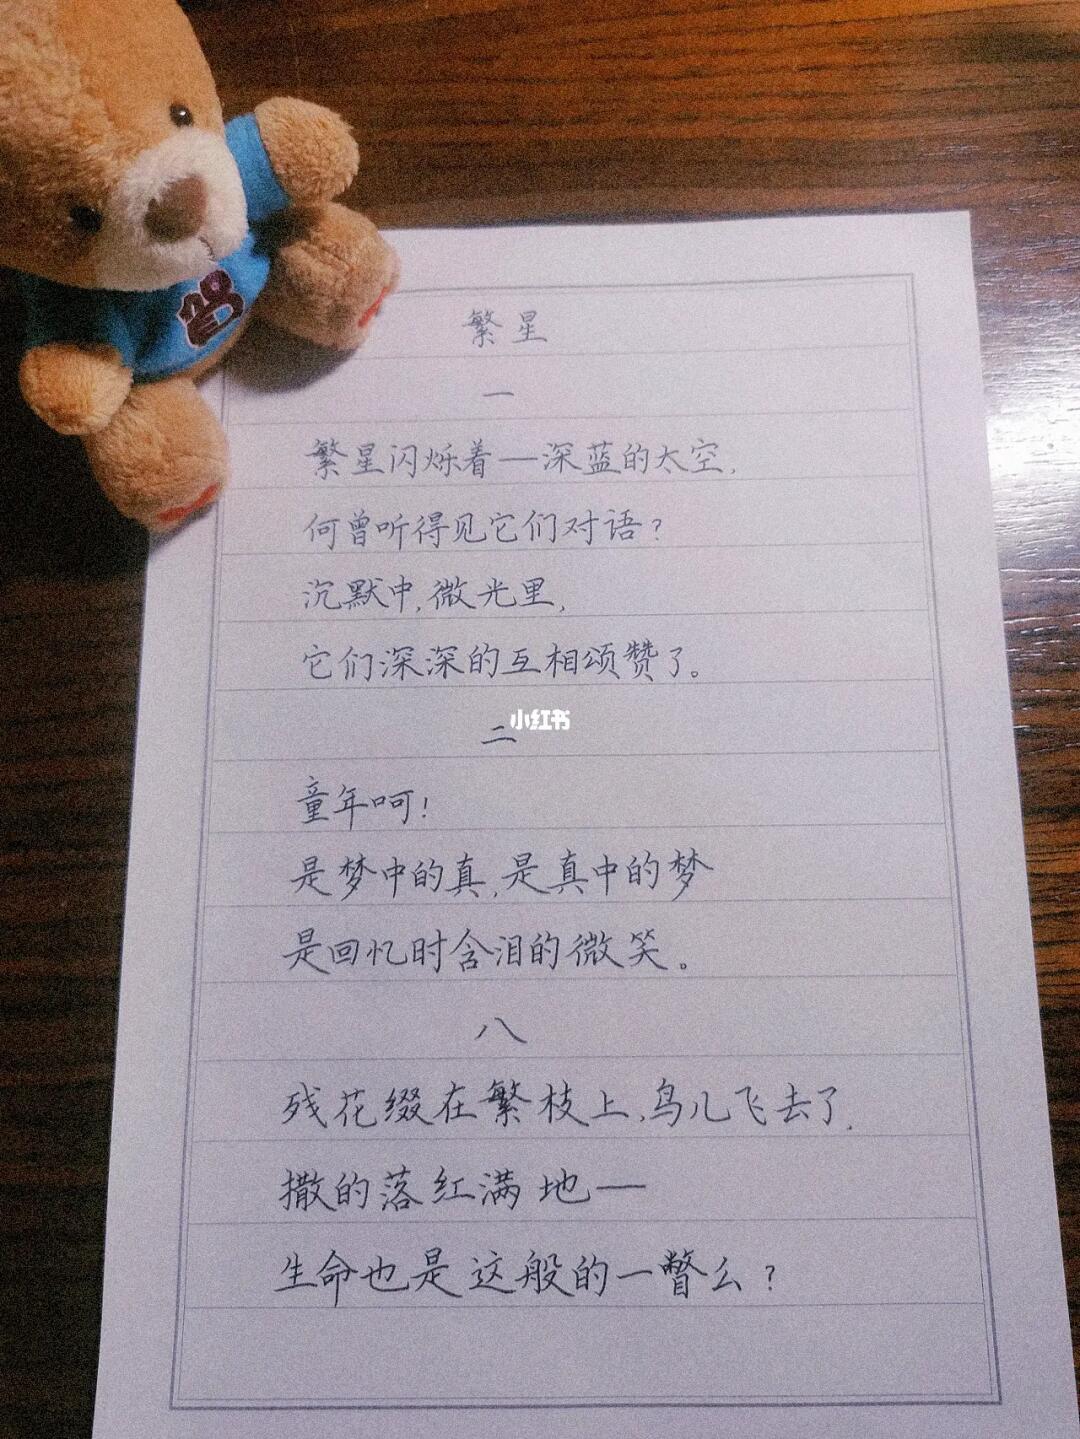 繁星
一
繁星闪烁着—深蓝的太空,
何曾听得见它们对语?
沉默中,微光里,
它们深深的互相颂赞了。
二
小红书
童年呵!
是梦中的真,是真中的梦
是回忆时含泪的微笑。
八
残花缀在繁枝上,鸟儿飞去了,
撒的落红满地—
生命也是这般的一瞥么?